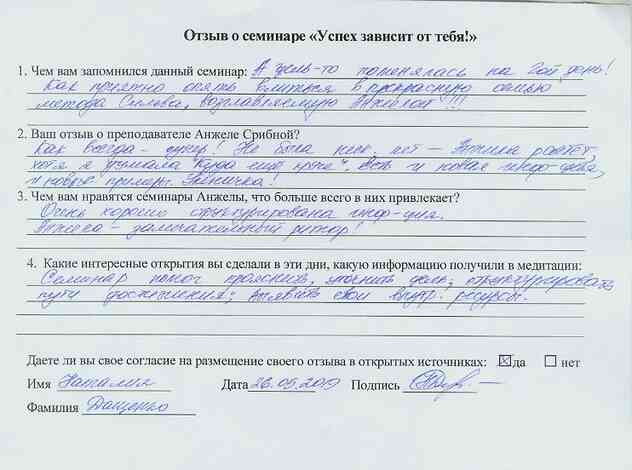 Отзыв о семинаре «Успех зависит от тебя!»
1. Чем вам запомнился данный семинар: А цель-то поменялась на 2ой день!
Как приятно опять влиться в прекрасную семью
метода Сильва, возглавляемую Анжелой!!!
2. Ваш отзыв о преподавателе Анжеле Срибной?
Как всегда - супер! Не была неск. лет - Анжела растёт,
хотя я думала "куда ещё круче". Есть и новая инфо-ция,
и новые примеры. Умничка!
3. Чем вам нравятся семинары Анжелы, что больше всего в них привлекает?
Очень хорошо структурирована инфо-ция.
Анжела - замечательный ритор!
4. Какие интересные открытия вы сделали в эти дни, какую информацию получили в медитации:
Семинар помог прояснить, уточнить цель, структурировать
пути достижения; выявить свои внутр. ресурсы.
Даете ли вы свое согласие на размещение своего отзыва в открытых источниках: ☒да ☐ нет
Имя Наталия Дата 26.05.2019 Подпись
Фамилия Дащенко